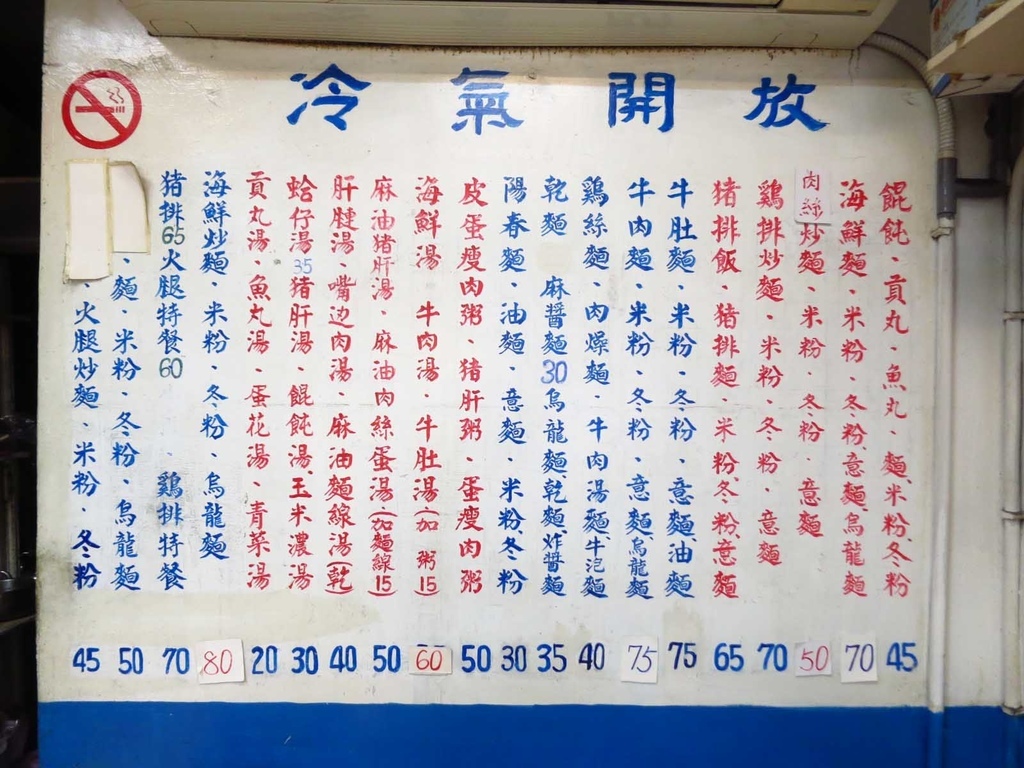 冷氣開放
餛飩、貢丸、魚丸、麵、米粉、冬粉 45
海鮮麵、米粉、冬粉、意麵、烏龍麵 70
肉絲炒麵、米粉、冬粉、意麵 50
鷄排炒麵、米粉、冬粉、意麵 70
猪排飯、猪排麵、米粉、冬粉、意麵 65
牛肚麵、米粉、冬粉、意麵油麵 75
牛肉麵、米粉、冬粉、意麵、烏龍麵 75
鷄絲麵、肉燥麵、牛肉湯麵、牛泡麵 40
乾麵 麻醬麵30烏龍麵、乾麵、炸醬麵 35
陽春麵、油麵、意麵、米粉、冬粉 30
皮蛋瘦肉粥、猪肝粥、蛋瘦肉粥 50
海鮮湯 牛肉湯、牛肚湯(加粥15) 60
麻油猪肝湯、麻油肉絲蛋湯、(加麵線15) 50
肝腱湯、嘴边肉湯、麻油麵線湯(乾) 40
蛤仔湯35猪肝湯、餛飩湯、玉米濃湯 30
貢丸湯、魚丸湯、蛋花湯、青菜湯 20
海鮮炒麵、米粉、冬粉、烏龍麵 80
猪排65火腿特餐60、鷄排特餐 70
、麵、米粉、冬粉、烏龍麵 50
、火腿炒麵、米粉、冬粉 45